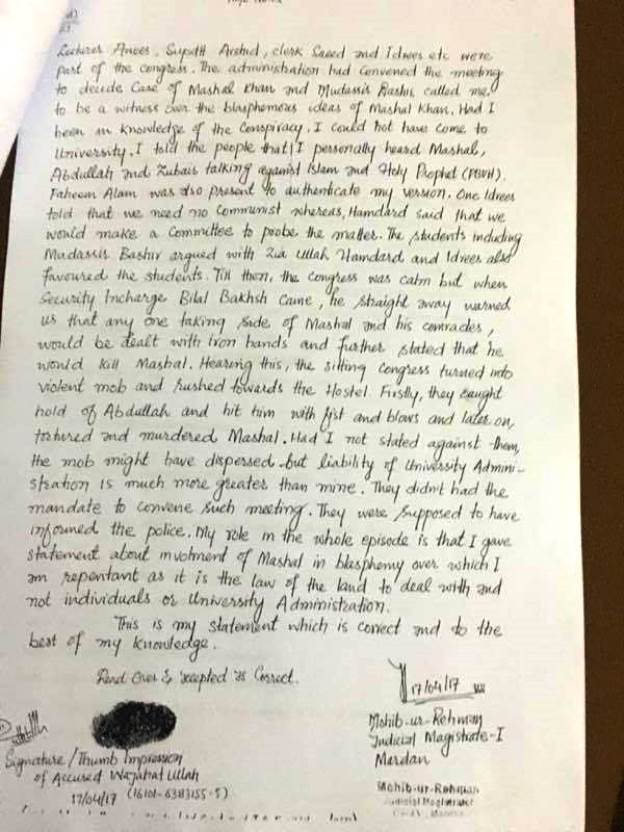 Lecturer Anees, Supdtt Arshad, clerk Saeed and Idrees etc were
part of the congress. The administration had convened the meeting
to decide Case of Mashal Khan and Mudassir Bashir called me,
to be a witness over the blasphemous ideas of Mashal Khan. Had I
been in knowledge of the Conspiracy, I could not have come to
University. I told the people that I personally heard Mashal,
Abdullah and Zubair talking against Islam and Holy Prophet (PBUH).
Faheem Alam was also present to authenticate my version. One Idrees
told that we need no Communist whereas, Hamdard said that we
would make a Committee to probe the matter. The students including
Mudassir Bashir argued with Zia Ullah Hamdard and Idrees also
favoured the students. Till then, the congress was calm but when
Security Incharge Bilal Bakhsh came, he straight away warned
us that any one taking side of Mashal and his comrades,
would be dealt with iron hands and further stated that he
would kill Mashal. Hearing this, the sitting congress turned into
violent mob and rushed towards the Hostel. Firstly, they caught
hold of Abdullah and hit him with fist and blows and later on,
tortured and murdered Mashal. Had I not stated against them,
the mob might have dispersed but liability of University Admini-
stration is much more greater than mine. They didn't had the
mandate to convene such meeting. They were supposed to have
informed the police. My role in the whole episode is that I gave
statement about involment of Mashal in blasphemy over which I
am repentant as it is the law of the land to deal with and
not individuals or University Administration.
This is my statement which is correct and to the
best of my knowledge.
Read Over & accepted as Correct.
17/04/17
Mohib-ur-Rehman
Judicial Magistrate-I
Mardan
Signature/Thumb Impression
of Accused Wajahat Ullah
17/04/17
Mohib-ur-Rehman
Judicial Magistrate